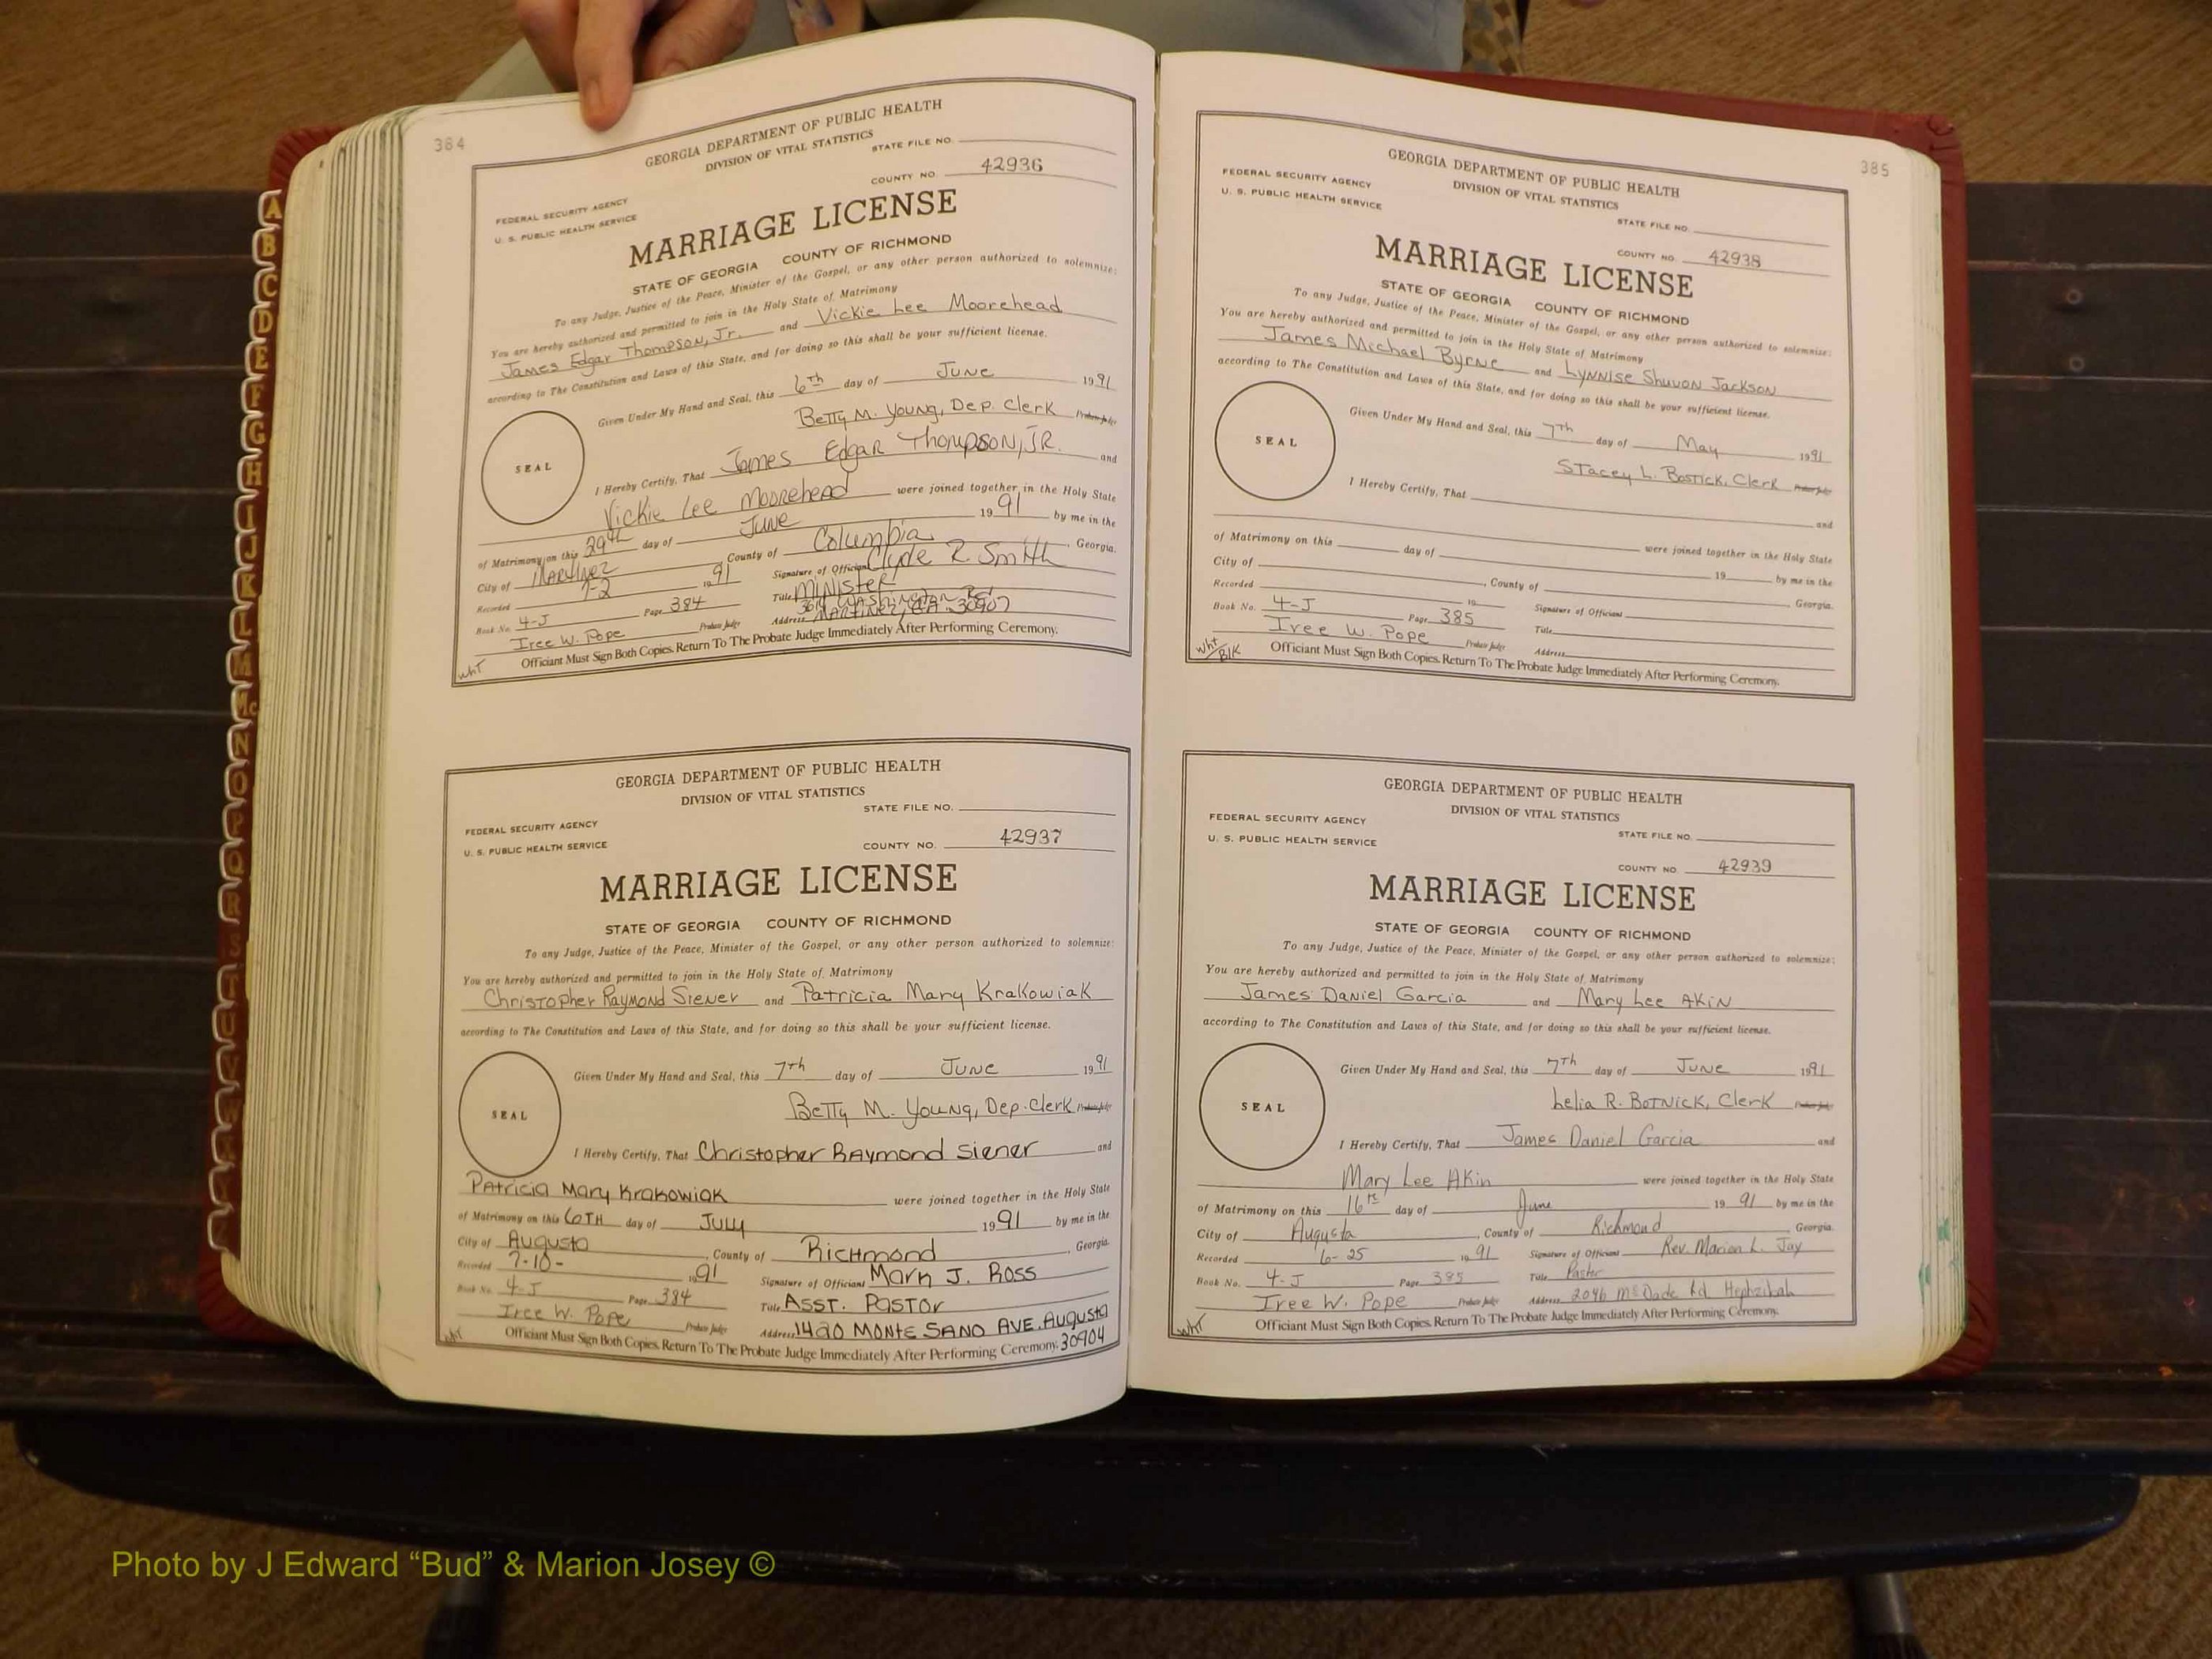 384
GEORGIA DEPARTMENT OF PUBLIC HEALTH
DIVISION OF VITAL STATISTICS
STATE FILE NO.
FEDERAL SECURITY AGENCY
U. S. PUBLIC HEALTH SERVICE
COUNTY NO. 42936
MARRIAGE LICENSE
STATE OF GEORGIA COUNTY OF RICHMOND
To any Judge, Justice of the Peace, Minister of the Gospel, or any other person authorized to solemnize:
You are hereby authorized and permitted to join in the Holy State of Matrimony
James Edgar Thompson, Jr. and Vickie Lee Moorehead
according to The Constitution and Laws of this State, and for doing so this shall be your sufficient license.
Given Under My Hand and Seal, this 6th day of June 1991
Betty M. Young, Dep. Clerk Probate Judge
SEAL
I Hereby Certify, That James Edgar Thompson, JR. and
Vickie Lee Moorehead were joined together in the Holy State
of Matrimony on this 29th day of June 1991 by me in the
City of Martinez County of Columbia, Georgia.
Recorded 7-2 1991 Signature of Official Clyde R. Smith
Book No. 4-J Page 384 Title Minister
Iree W. Pope Probate Judge Address Washington Rd. Martinez, GA 30907
Officiant Must Sign Both Copies. Return To The Probate Judge Immediately After Performing Ceremony.
Wht
GEORGIA DEPARTMENT OF PUBLIC HEALTH
DIVISION OF VITAL STATISTICS
STATE FILE NO.
FEDERAL SECURITY AGENCY
U. S. PUBLIC HEALTH SERVICE
COUNTY NO. 42937
MARRIAGE LICENSE
STATE OF GEORGIA COUNTY OF RICHMOND
To any Judge, Justice of the Peace, Minister of the Gospel, or any other person authorized to solemnize:
You are hereby authorized and permitted to join in the Holy State of Matrimony
Christopher Raymond Siener and Patricia Mary Krakowiak
according to The Constitution and Laws of this State, and for doing so this shall be your sufficient license.
Given Under My Hand and Seal, this 7th day of June 1991
Betty M. Young, Dep. Clerk Probate Judge
SEAL
I Hereby Certify, That Christopher Raymond Siener and
Patricia Mary Krakowiak were joined together in the Holy State
of Matrimony on this 6TH day of JULY 1991 by me in the
City of Augusta, County of Richmond, Georgia.
Recorded 7-10- 1991 Signature of Officiant Mark J. Ross
Book No. 4-J Page 384 Title Asst. Pastor
Iree W. Pope Probate Judge Address 1420 Monte Sano Ave. Augusta
Officiant Must Sign Both Copies. Return To The Probate Judge Immediately After Performing Ceremony. 30904
Wht
385
GEORGIA DEPARTMENT OF PUBLIC HEALTH
DIVISION OF VITAL STATISTICS
FEDERAL SECURITY AGENCY
U. S. PUBLIC HEALTH SERVICE
STATE FILE NO.
COUNTY NO. 42938
MARRIAGE LICENSE
STATE OF GEORGIA COUNTY OF RICHMOND
To any Judge, Justice of the Peace, Minister of the Gospel, or any other person authorized to solemnize:
You are hereby authorized and permitted to join in the Holy State of Matrimony
James Michael Byrne and Lynnise Shuvon Jackson
according to The Constitution and Laws of this State, and for doing so this shall be your sufficient license.
Given Under My Hand and Seal, this 7th day of May 1991
Stacey L. Bostick, Clerk Probate Judge
SEAL
I Hereby Certify, That and
were joined together in the Holy State
of Matrimony on this day of 19 by me in the
City of , County of Georgia.
Recorded 19 Signature of Officiant
Book No. 4-J Page 385 Title
Iree W. Pope Probate Judge Address
Officiant Must Sign Both Copies. Return To The Probate Judge Immediately After Performing Ceremony.
Wht/Blk
GEORGIA DEPARTMENT OF PUBLIC HEALTH
DIVISION OF VITAL STATISTICS
FEDERAL SECURITY AGENCY
U. S. PUBLIC HEALTH SERVICE
STATE FILE NO.
COUNTY NO. 42939
MARRIAGE LICENSE
STATE OF GEORGIA COUNTY OF RICHMOND
To any Judge, Justice of the Peace, Minister of the Gospel, or any other person authorized to solemnize:
You are hereby authorized and permitted to join in the Holy State of Matrimony
James Daniel Garcia and Mary Lee Akin
according to The Constitution and Laws of this State, and for doing so this shall be your sufficient license.
Given Under My Hand and Seal, this 7th day of June 1991
Lelia R. Botnick, Clerk Probate Judge
SEAL
I Hereby Certify, That James Daniel Garcia and
Mary Lee Akin were joined together in the Holy State
of Matrimony on this 16th day of June 1991 by me in the
City of Augusta, County of Richmond, Georgia.
Recorded 6-25 1991 Signature of Officiant Rev. Marion L. Jay
Book No. 4-J Page 385 Title Pastor
Iree W. Pope Probate Judge Address 2096 McDade Rd Hephzibah
Officiant Must Sign Both Copies. Return To The Probate Judge Immediately After Performing Ceremony.
Wht
A
B
C
D
E
F
G
H
I
J
K
L
M
Mc
N
O
P
Q
R
S
T
U
V
W
Photo by J Edward “Bud” & Marion Josey ©